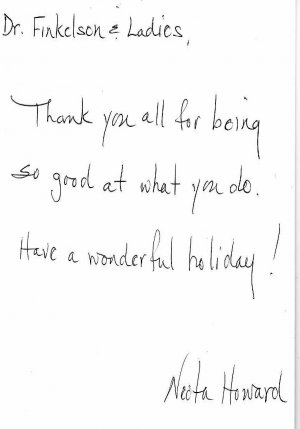 Dr. Finkelson & Ladies,
Thank you all for being
so good at what you do.
Have a wonderful holiday!
Neeta Howard